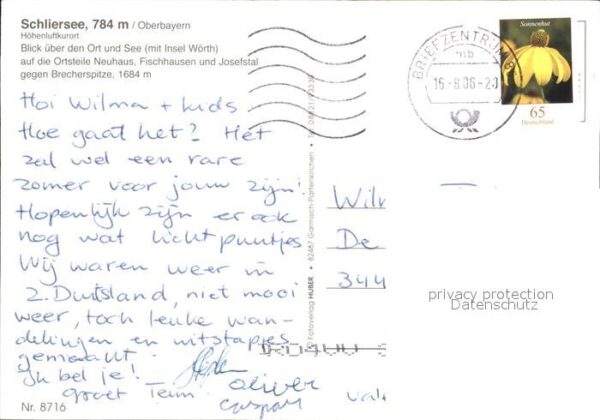 Schliersee, 784 m / Oberbayern
Höhenluftkurort
Blick über den Ort und See (mit Insel Wörth)
auf die Ortsteile Neuhaus, Fischhausen und Josefstal
gegen Brecherspitze, 1684 m
Hoi Wilma + kids
Hoe gaat het? Het
zal wel een rare
zomer voor jouw zijn!
Hopenlijk zijn er ook
nog wat lichtpuntjes
Wij waren weer in
Z.Duitsland, niet mooi
weer, toch leuke wan-
delingen en uitstapjes
gemaakt.
Ik bel je!
Groet Teun
Oliver
Caspar
Nr. 8716
© Fotoverlag HUBER • 82467 Garmisch-Partenkirchen •
BRIEFZENTRUM
mb
Sonnenhut
65
Deutschland
Wil
De
344
privacy protection
Datenschutz